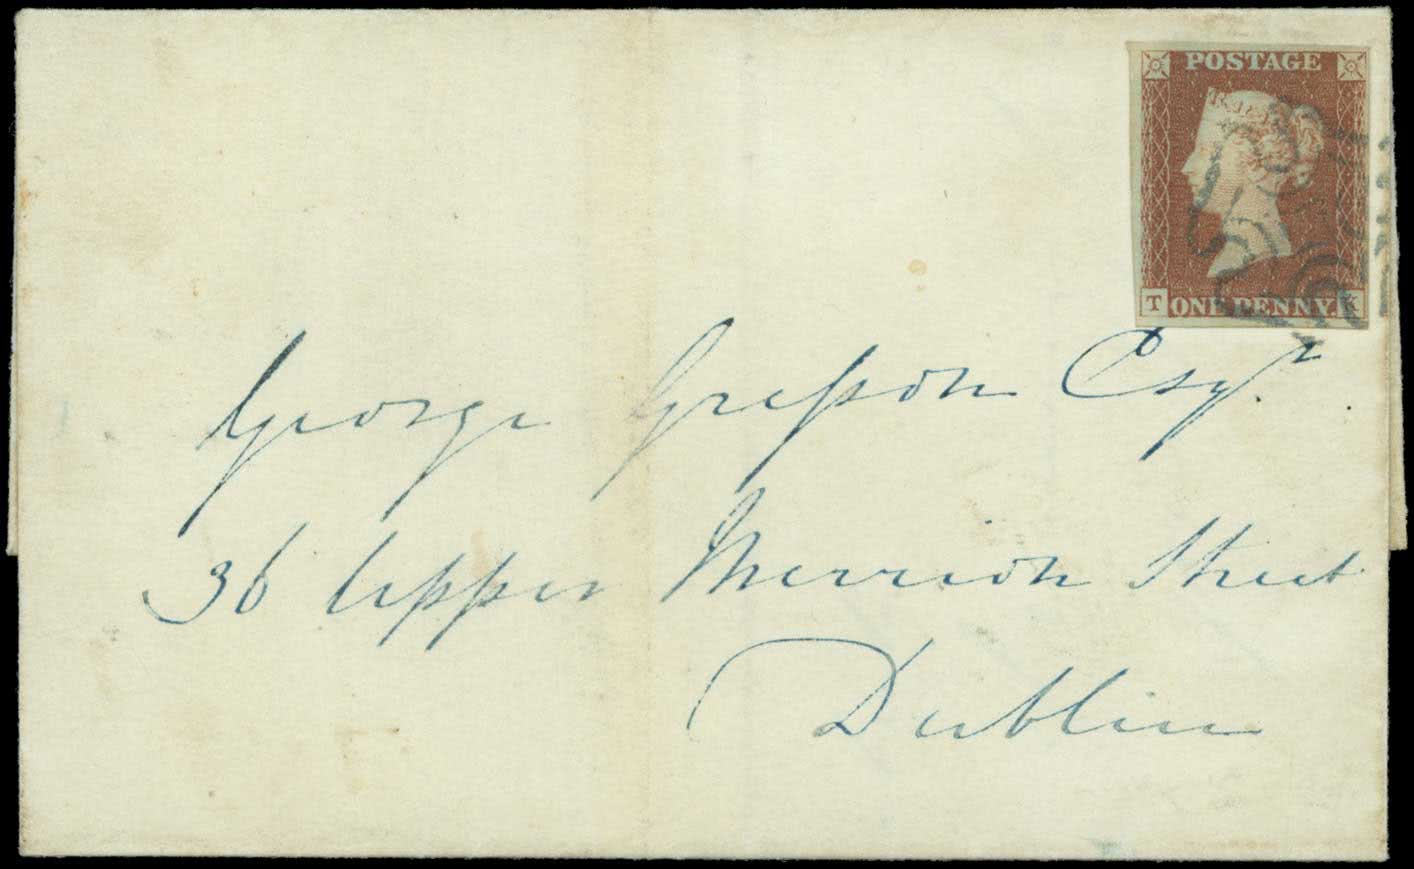 POSTAGE
T ONE PENNY. K
George Gresson Esqr
36 Upper Merrion Street
Dublin